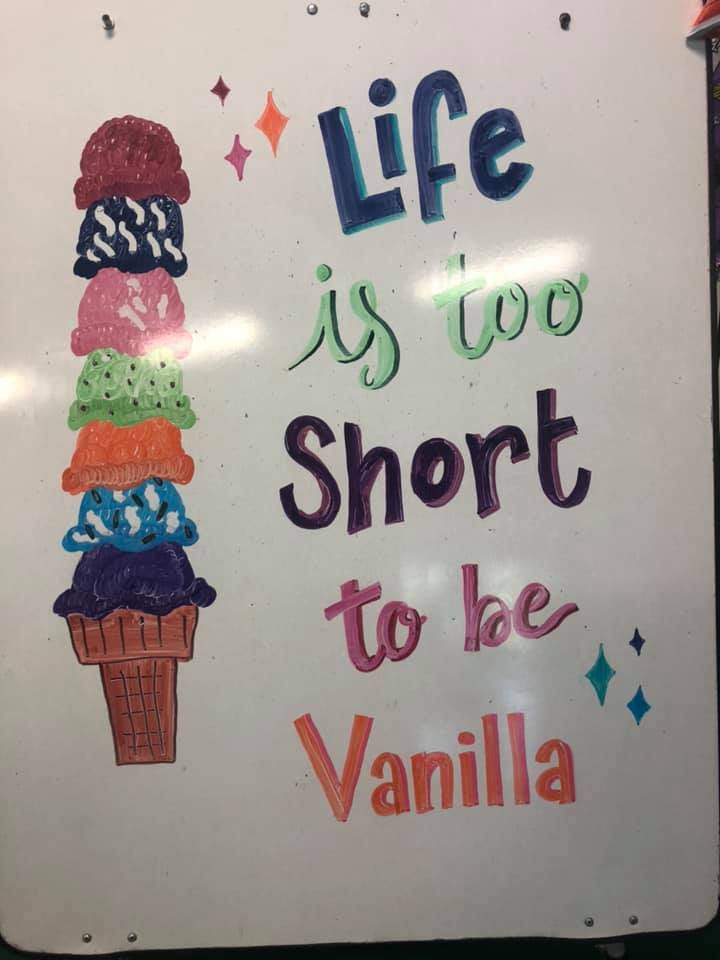 Life
is too
Short
to be
Vanilla